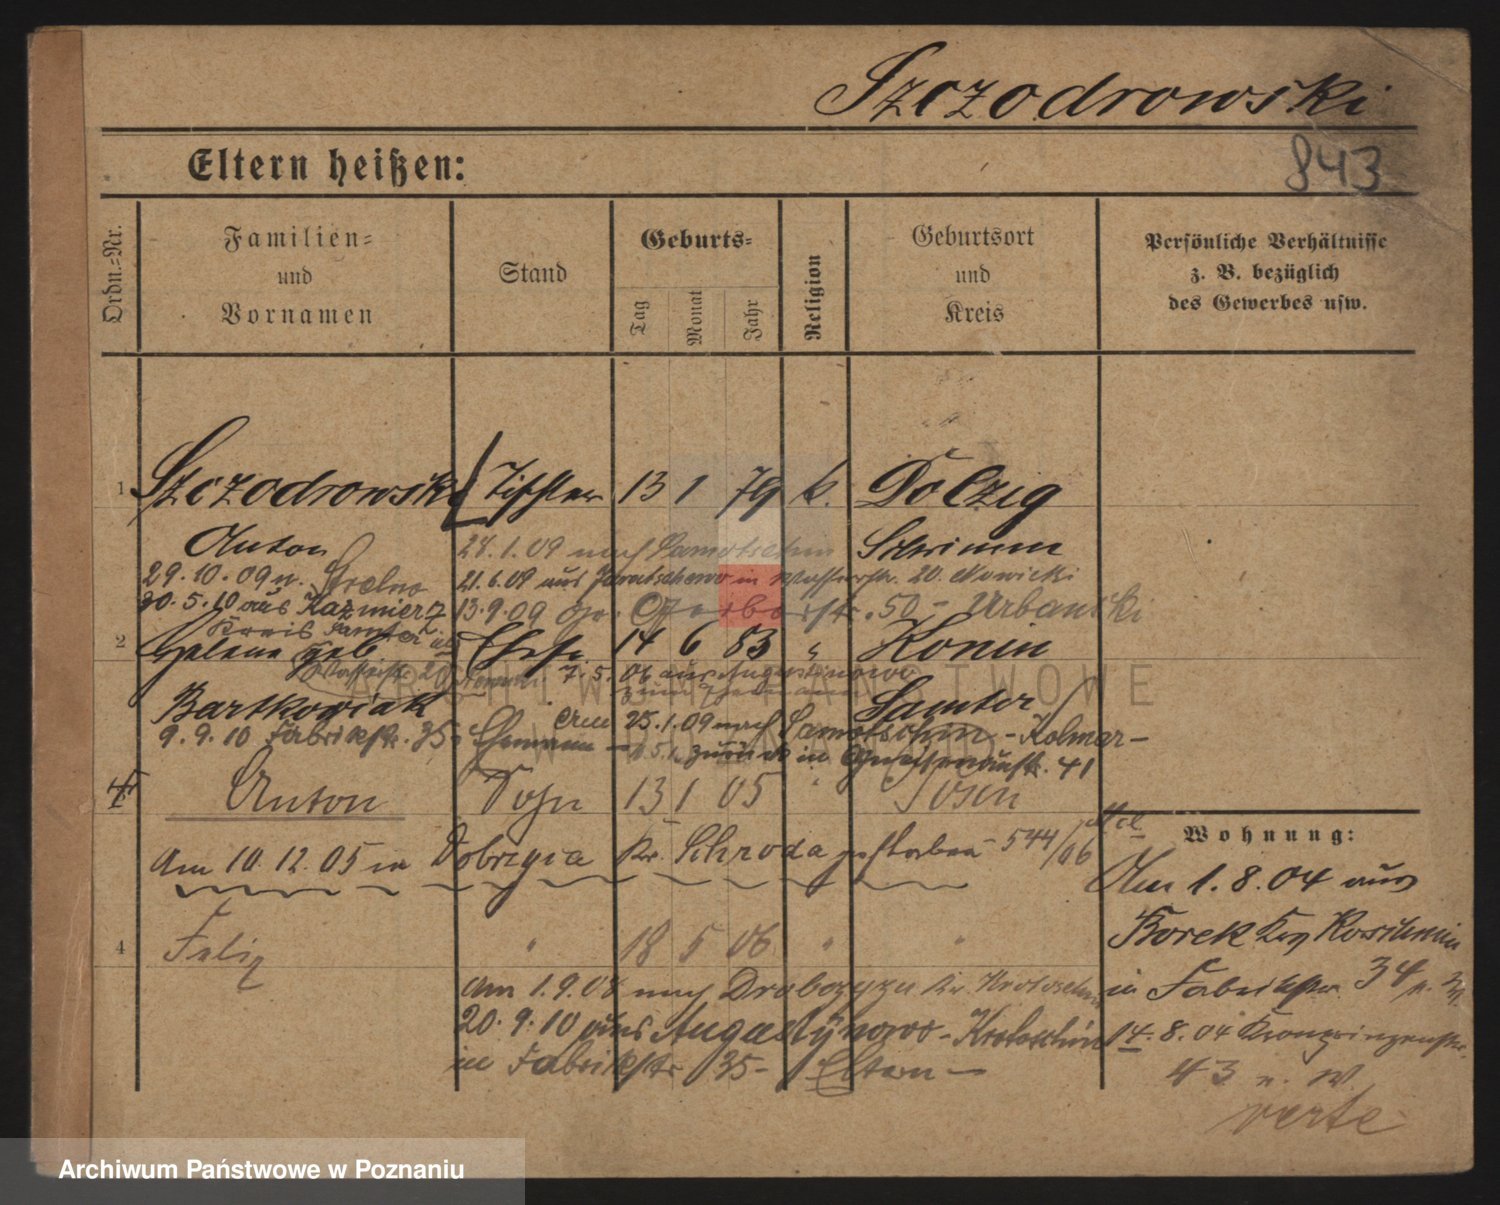 Szczodrowski
843
Eltern heißen:
Ordn.=Nr.
Familien=
und
Vornamen
Stand
Geburts=
Tag
Monat
Jahr
Religion
Geburtsort
und
Kreis
Persönliche Verhältnisse
z. B. bezüglich
des Gewerbes usw.
1 Szczodrowski Tischler 13 1 79 k. Dolzig
Anton Schrimm
28.1.09 nach Samotschin
29.10.09 n. Strelno
21.6.09 aus in 20. Nowicki
30.5.10 aus Kazmierz
13.9.09 Gr. Gerberstr. 50 - Urbanski
Kreis Samter
2 Helene geb. Ehefr. 14 6 83 " Konin
7.5.06 aus Augustinowo
Bartkowiak Samter
Am 25.1.09 nach Samotschin - Kolmar -
9.9.10 Fabrikstr. 35 Ehemann - zurück in Gneisenaustr. 41
4 Anton Sohn 13 1 05 " Posen
Am 10.12.05 in Dobrzyca Kr. Schroda gestorben - 544/06
4 Felix " 18 5 06 " "
Am 1.9.08 nach
20.9.10 aus Augustynowo - Krotoschin
in Fabrikstr. 35 - Eltern -
Wohnung:
Am 1.8.04 aus
Borek Krs Koschmin
in Fabrikstr. 34
14.8.04 Kronprinzenstr.
43 n. W.
verte
ARCHIWUM PAŃSTWOWE
W POZNANIU
Archiwum Państwowe w Poznaniu